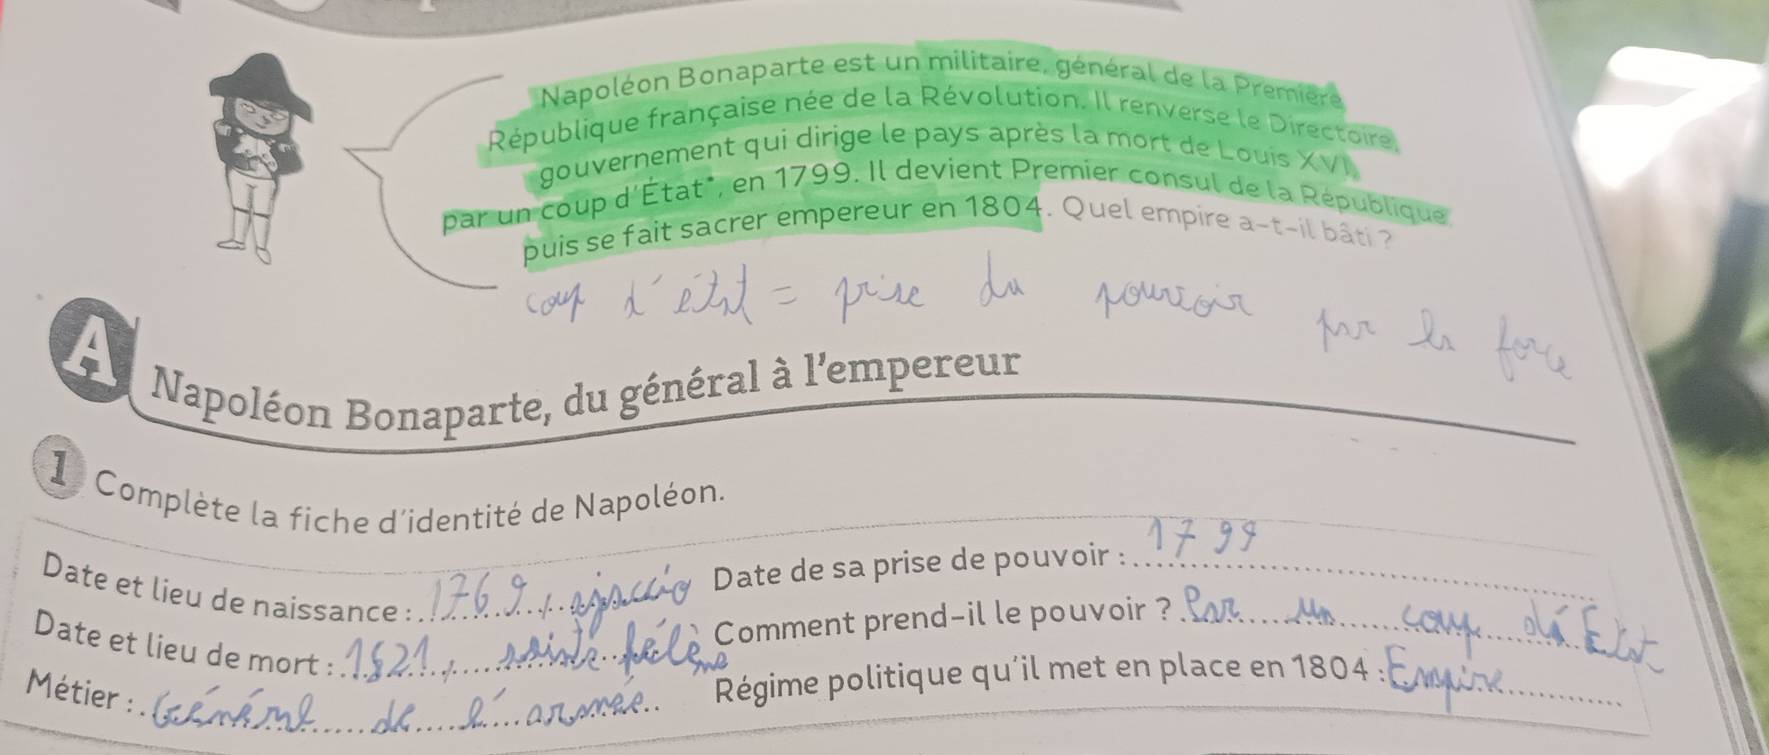 Napoléon Bonaparte est un militaire, général de la Première
République française née de la Révolution. Il renverse le Directoire,
gouvernement qui dirige le pays après la mort de Louis XVI,
par un coup d'État*, en 1799. Il devient Premier consul de la République
puis se fait sacrer empereur en 1804. Quel empire a-t-il bâti ?
coup d'état = prise du pouvoir par la force
A Napoléon Bonaparte, du général à l'empereur
1 Complète la fiche d'identité de Napoléon.
Date et lieu de naissance : 1769, ajaccio
Date et lieu de mort : 1821, sainte hélène
Métier : Général de l'armée
Date de sa prise de pouvoir : 1799
Comment prend-il le pouvoir ? Par un coup d'État
Régime politique qu'il met en place en 1804 : Empire